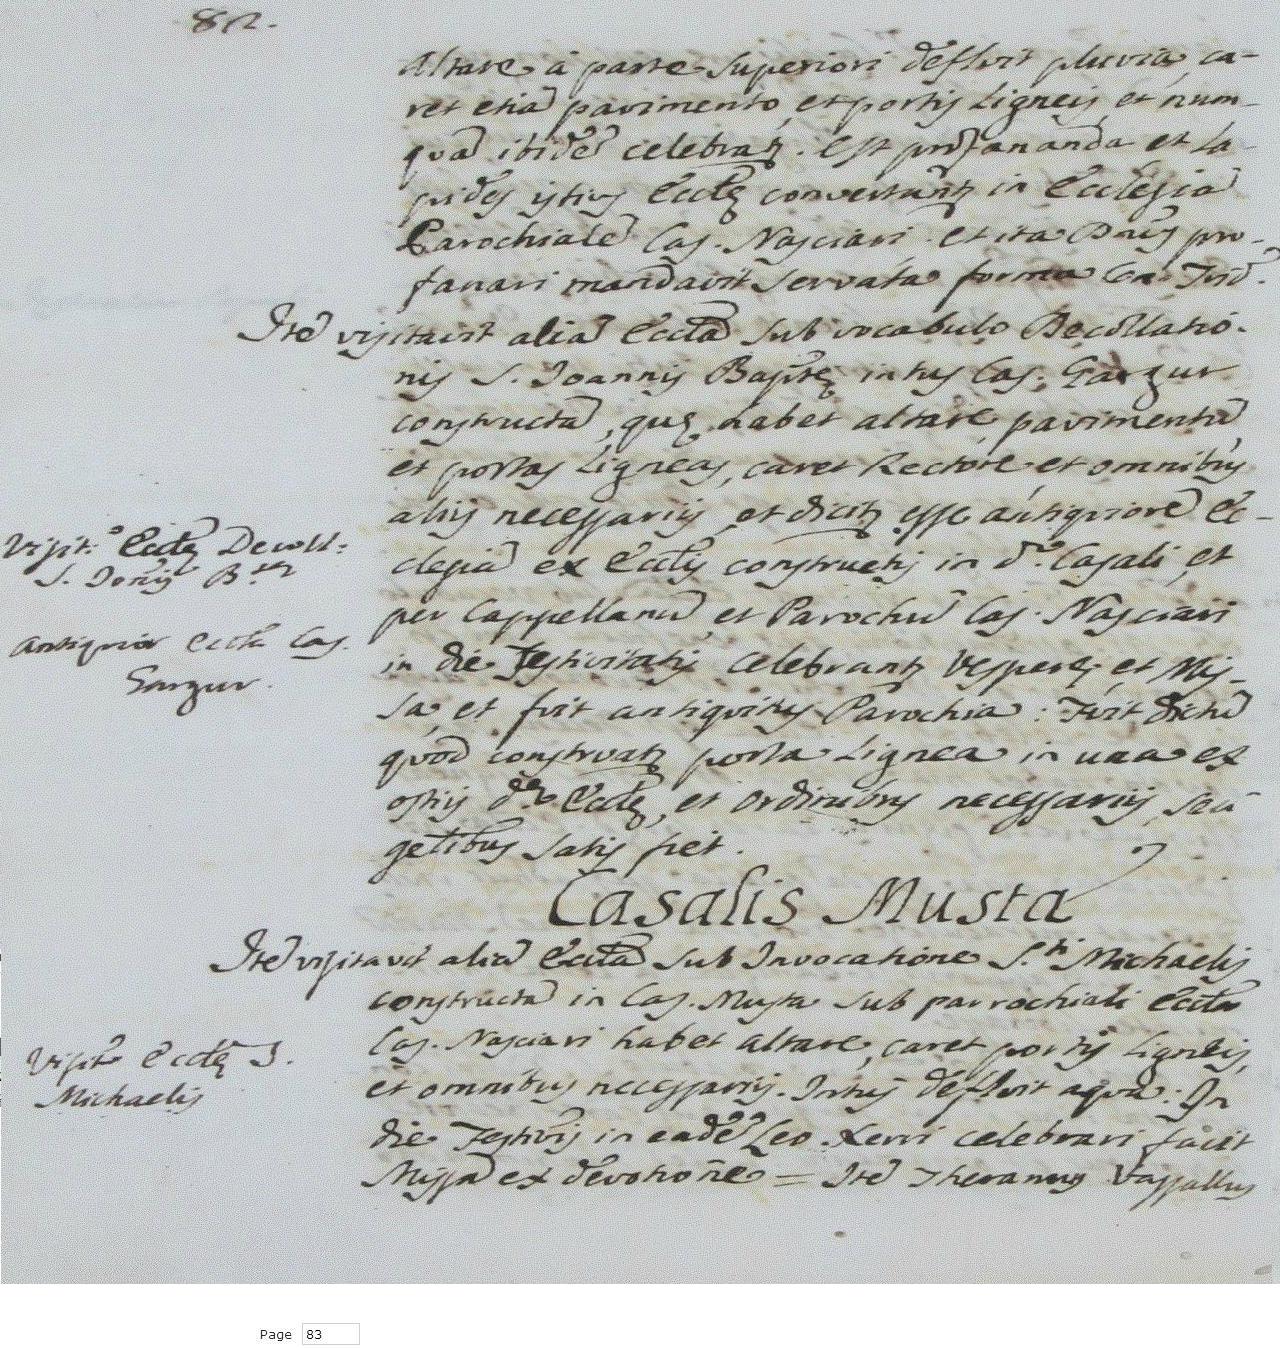 82.
Altare à parte superiori defluit pluvia, ca-
ret etiã pavimento, et portis Ligneis, et num-
quã ibidẽ celebratr. Est profananda et La-
pides istius Ecclę convertantr in Ecclesiã
Parochialẽ Cas. Nasciari et ita Dñs pro-
fanari mandavit servata forma Con. Trid.
Itẽ visitavit aliã Ecclã sub vocabulo Decollatio-
nis S. Joannis Baptę intus Cas. Gargur
constructã, quę habet altare, pavimentũ,
et portas Ligneas, caret Rectore, et omnibus
aliis necessariis, et dicitr esse antiquiorẽ Ec-
clesiã ex Ecclijs constructis in do. Casali, et
per Cappellanũ et Parochũ Cas. Nasciari
in die Festivitatis celebrantr Vesperę, et Mis-
sa, et fuit antiquitus Parochia: Fuit dictũ
quod construatr porta Lignea in una ex
ostijs dę Ecclę, et Ordinibus necessariis, seu
getibus satis fiet.
Visit.o Ecclę Decoll:
S. Joñis B.tę
Antiquior Eccla Cas.
Gargur.
Casalis Musta
Itẽ visitavit aliã Ecclã sub Invocatione S.ti Michaelis
constructã in Cas. Musta sub parrochiali Eccla
Cas. Nasciari habet altare, caret portis Ligneis,
et omnibus necessariis. Intus defluit aqua: In
die Festivis in eadẽ Leo Xerri celebrari facit
Missã ex devotione = Itẽ Theramus Vassallus
Visit.o Ecclę S.
Michaelis
Page 83